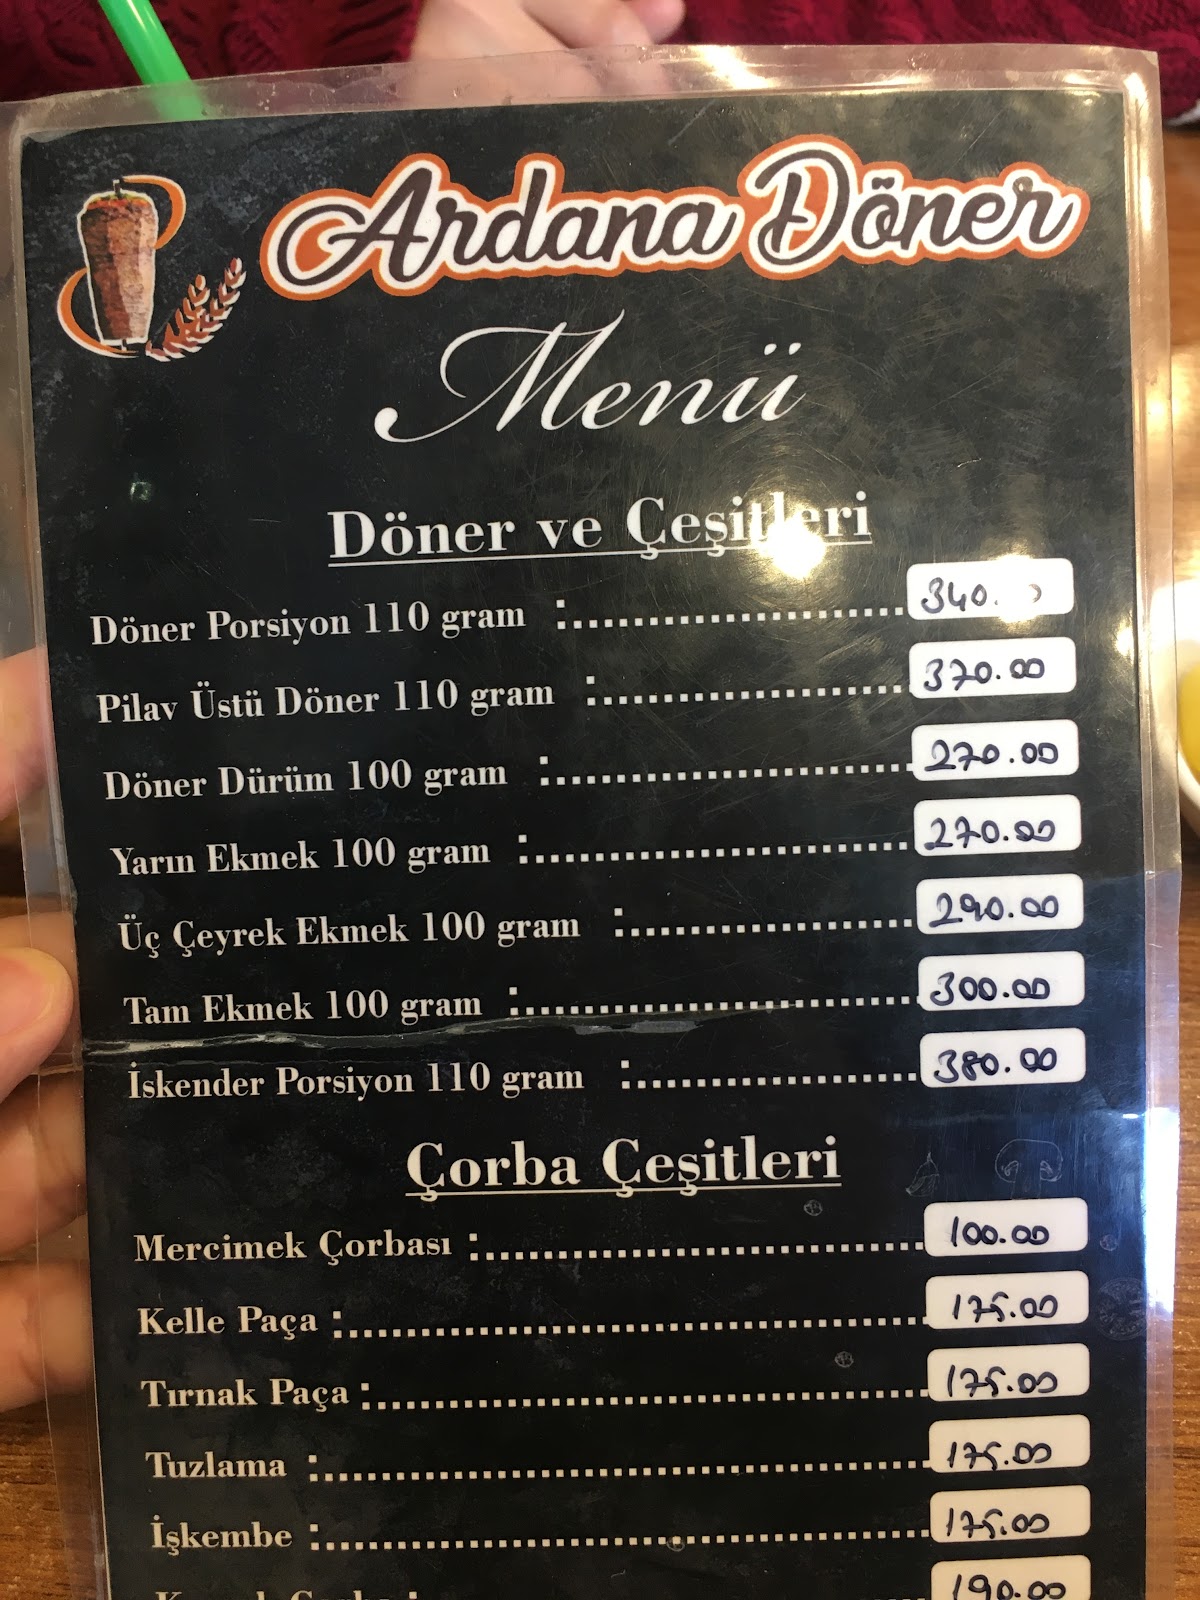 Ardana Döner
Menü
Döner ve Çeşitleri
Döner Porsiyon 110 gram :........................ 340.
Pilav Üstü Döner 110 gram :...................... 370.00
Döner Dürüm 100 gram :.......................... 270.00
Yarın Ekmek 100 gram :........................... 270.00
Üç Çeyrek Ekmek 100 gram :..................... 290.00
Tam Ekmek 100 gram :............................. 300.00
İskender Porsiyon 110 gram :.................... 380.00
Çorba Çeşitleri
Mercimek Çorbası :................................ 100.00
Kelle Paça :........................................... 175.00
Tırnak Paça :......................................... 175.00
Tuzlama :.............................................. 175.00
İşkembe :.............................................. 175.00
190.00